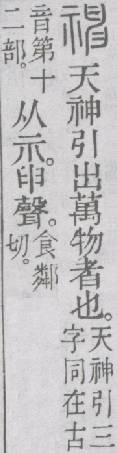 神天神引出萬物者也。天神引三字同在古
音第十二部。从示。申聲。食鄰切。